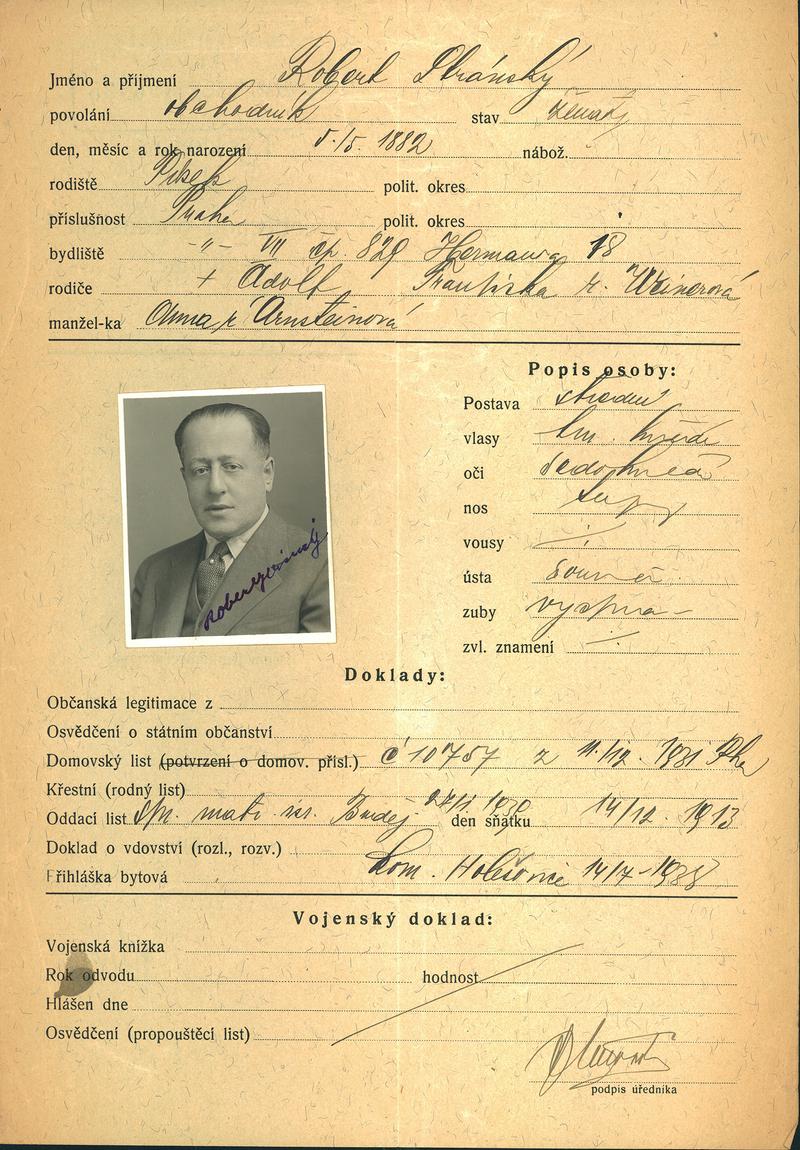 Jméno a příjmení Robert Stránský
povolání obchodník stav ženatý
den, měsíc a rok narození 5./5. 1882 nábož.
rodiště Písek polit. okres
příslušnost Praha polit. okres
bydliště -"- VII čp. 829 Hermanova 18
rodiče + Adolf Františka r. Weinerová
manžel-ka Anna r Arnsteinová
Popis osoby:
Postava střední
vlasy tm. hnědé
oči šedohnědé
nos tupý
vousy ·/·
ústa souměr.
zuby
zvl. znamení ·/·
Robert Stránský
Doklady:
Občanská legitimace z
Osvědčení o státním občanství
Domovský list (potvrzení o domov. přísl.) č 10757 z 11/12. 1931 Pha
Křestní (rodný list)
Oddací list matr. isr. Buděj. den sňatku 14/12. 1913
Doklad o vdovství (rozl., rozv.)
Přihláška bytová kom. Holešovice 14/7 -
Vojenský doklad:
Vojenská knížka
Rok odvodu hodnost
Hlášen dne
Osvědčení (propouštěcí list)
podpis úředníka